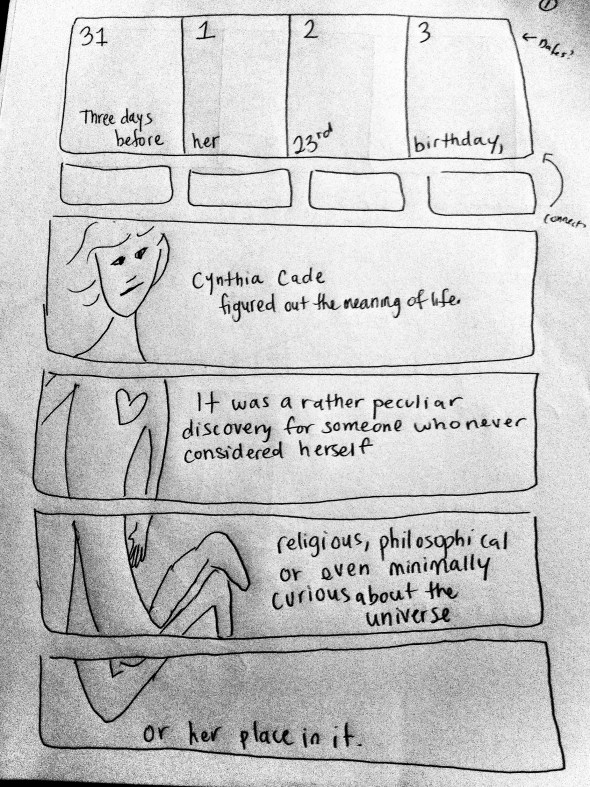 ①
31
1
2
3
← Dates?
Three days
before
her
23rd
birthday,
connect
Cynthia Cade
figured out the meaning of life.
It was a rather peculiar
discovery for someone who never
considered herself
religious, philosophical
or even minimally
curious about the
universe
or her place in it.